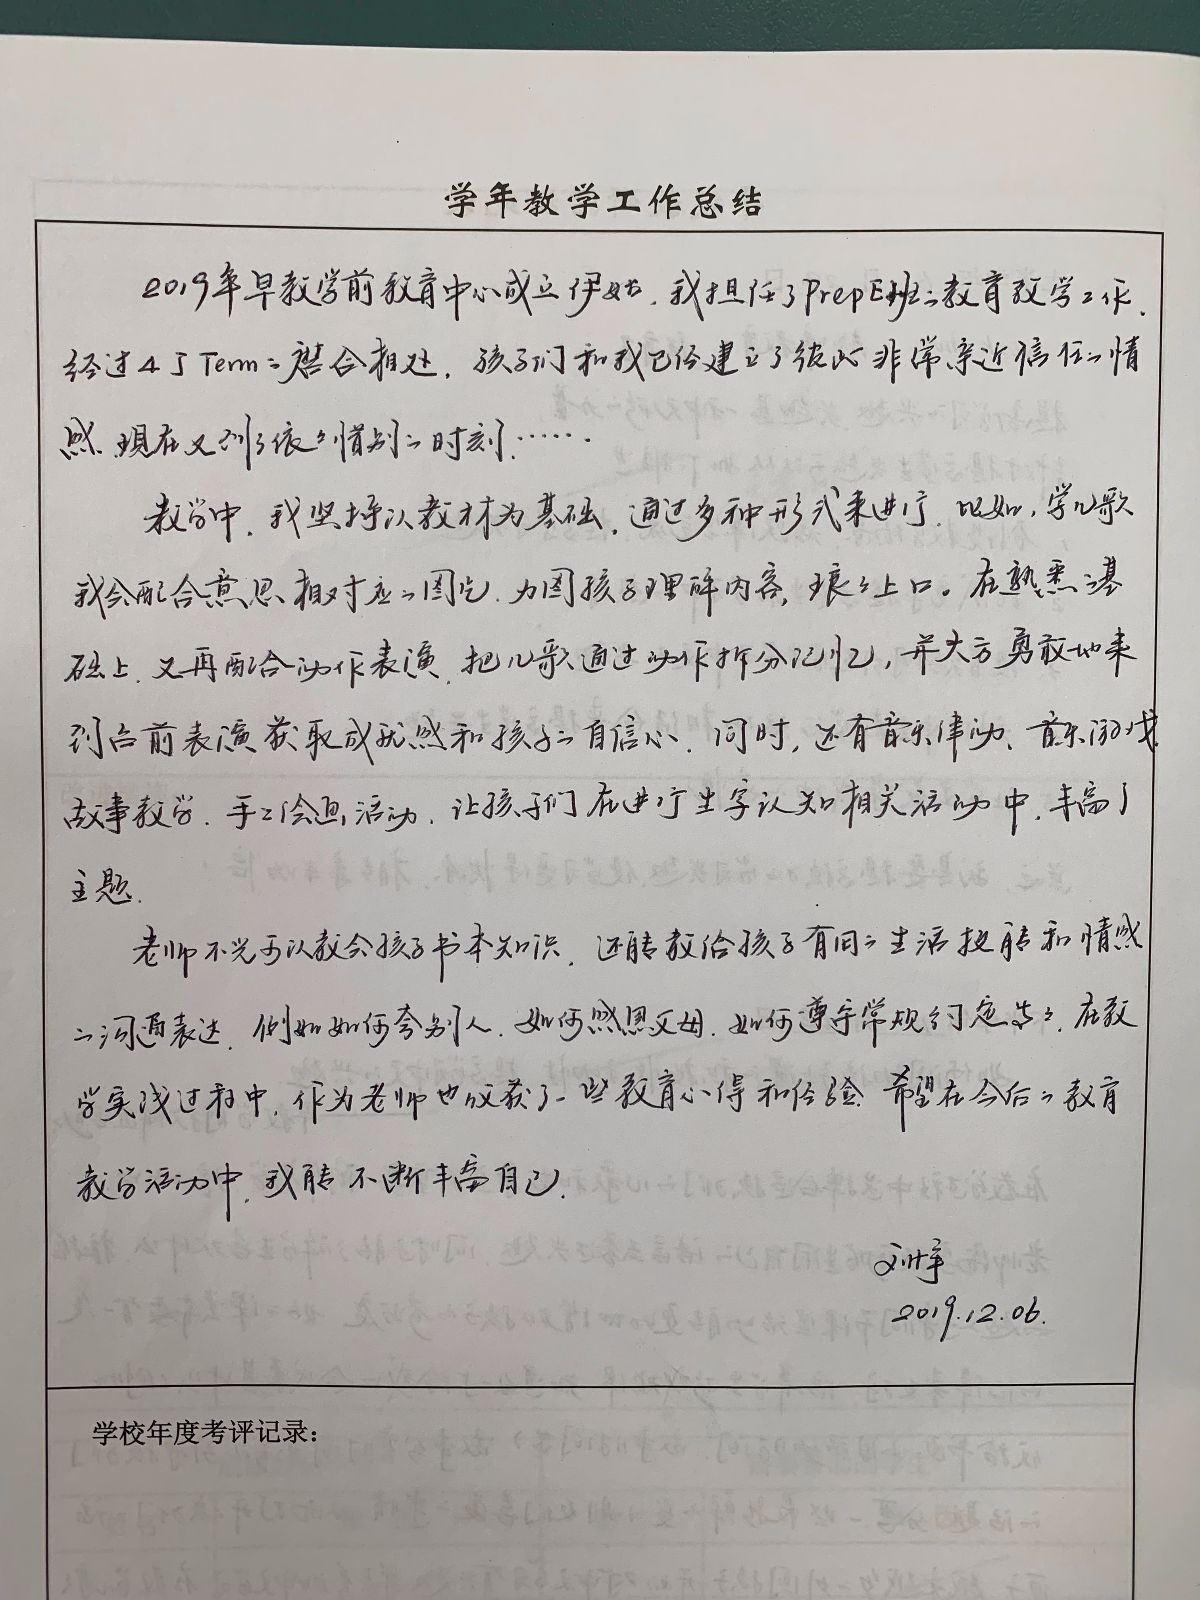 学年教学工作总结
2019年早教学前教育中心成立伊始，我担任了PrepE班的教育教学工作，
经过4个Term的磨合相处，孩子们和我已经建立了彼此非常亲近信任的情
感，现在又到了依依惜别的时刻……
教学中，我坚持以教材为基础，通过多种形式来进行，比如，学儿歌
我会配合意思相对应的图片，力图孩子理解内容，琅琅上口。在熟悉的基
础上，又再配合动作表演，把儿歌通过动作拆分记忆，并大方勇敢地来
到台前表演获取成就感和孩子的自信心，同时，还有音乐律动、音乐游戏
故事教学、手工绘画活动，让孩子们在进行生字认知相关活动中，丰富了
主题。
老师不光可以教会孩子书本知识，还能教给孩子有同的生活技能和情感
的沟通表达，例如如何夸别人，如何感恩父母，如何遵守常规约定等等，在教
学实践过程中，作为老师也收获了一些教育心得和经验，希望在今后的教育
教学活动中，我能不断丰富自己。
2019.12.06.
学校年度考评记录：